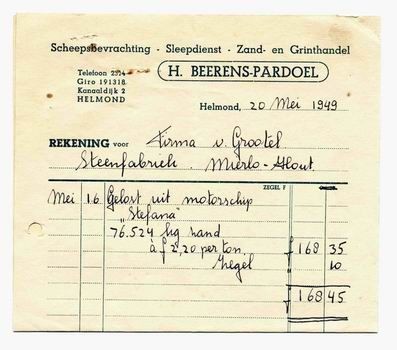 Scheepsbevrachting · Sleepdienst · Zand- en Grinthandel
Telefoon 2314
Giro 191318
Kanaaldijk 2
HELMOND
H. BEERENS-PARDOEL
Helmond, 20 Mei 1949
REKENING voor Firma v. Grootel
Steenfabriek. Mierlo-Hout.
ZEGEL F
Mei 16 Gelost uit motorschip
"Stefana"
76.524 kg zand
à f 2,20 per ton. f 168 35
zegel 10
f 168 45